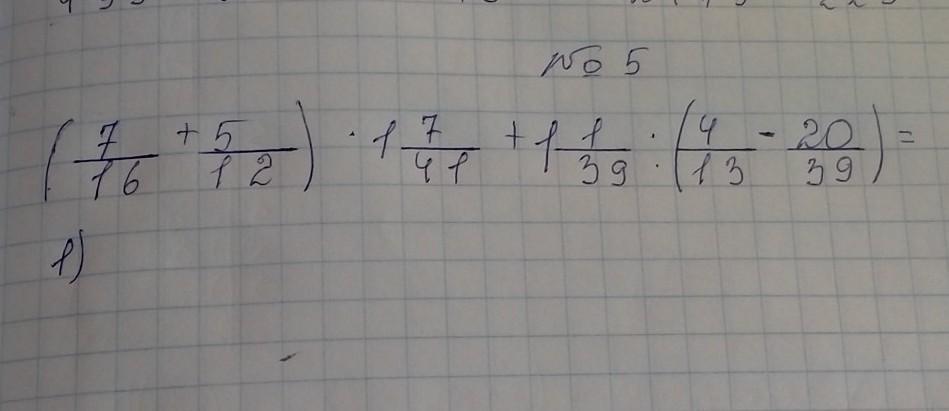 № 5
(7/16 + 5/12) · 1 7/41 + 1 1/39 : (4/13 - 20/39) =
1)